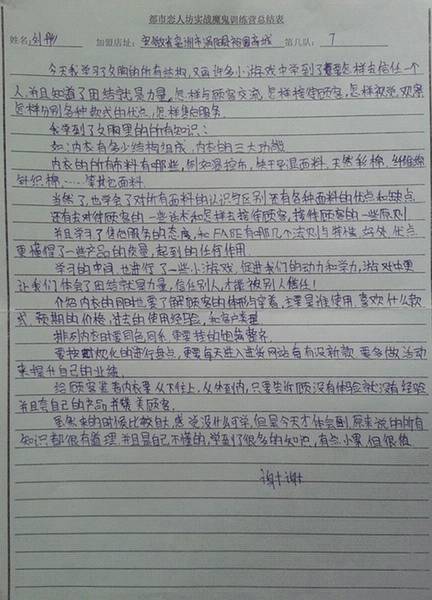 都市恋人坊实战魔鬼训练营总结表
姓名: 刘 加盟店址: 安徽省亳州市涡阳县裕园商城 第几队: 7
今天我学习了文胸的所有结构,又再许多小游戏中学到了要怎样去信任一个
人,并且知道了团结就是力量,怎样与顾客交流,怎样接待顾客,怎样观察
怎样分别各种款式的优点,怎样售后服务.
我学到了文胸里的所有知识:
如:内衣有多少结构组成,内衣的三大功能
内衣的所有布料有哪些,例如:温控布,快干吸湿面料,天然彩棉,纤维棉
针织棉……等其它面料.
当然了,也学会了对所有面料的认识与区别还有各种面料的优点和缺点
还有去对待顾客的一些话术和怎样去接待顾客,接待顾客的一些原则
并且学习了售后服务的态度,和FABE有哪几个法则与特性 好处 优点
更懂得了一些产品的质量,起到的任何作用
学习的中间,也进行了一些小游戏,促进我们的动力和学力,游戏中更
让我们体会了团结就是力量,信任别人,才能被别人信任!
介绍内衣的同时也要了解顾客的体形与穿着,主要是谁使用,喜欢什么款
式,预期的价格,过去的使用经验,和客户类型
排列内衣时要同色同系,重要挂的他要整齐.
要按 化的进行盘点,重要每天进入进货网站看有没新款,要多做活动
来提升自己的业绩.
给顾客试穿内衣要从下往上,从外到内,只要告诉顾 没有体验就没有经验
并且夸自己的产品,并赞美顾客.
虽然来的时候比较自大,感觉没什么可学,但是今天才体会到,原来说的所有
知识都很有道理,并且是自己不懂的,学到了很多的知识,有点小累,但很值
谢谢